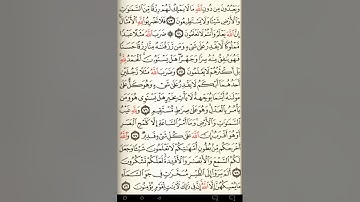 ويعبدون من دون الله ما لا يملك لهم رزقا من السموات
والأرض شيئا ولا يستطيعون ٧٣ فلا تضربوا لله الأمثال
إن الله يعلم وأنتم لا تعلمون ٧٤ ضرب الله مثلا عبدا
مملوكا لا يقدر على شيء ومن رزقناه منا رزقا حسنا
فهو ينفق منه سرا وجهرا هل يستوون الحمد لله
بل أكثرهم لا يعلمون ٧٥ وضرب الله مثلا رجلين
أحدهما أبكم لا يقدر على شيء وهو كل على
مولاه أينما يوجهه لا يأت بخير هل يستوي هو ومن
يأمر بالعدل وهو على صراط مستقيم ٧٦ ولله غيب
السموات والأرض وما أمر الساعة إلا كلمح البصر
أو هو أقرب إن الله على كل شيء قدير ٧٧ والله
أخرجكم من بطون أمهاتكم لا تعلمون شيئا وجعل
لكم السمع والأبصار والأفئدة لعلكم تشكرون ٧٨
ألم يروا إلى الطير مسخرات في جو السماء
ما يمسكهن إلا الله إن في ذلك لآيات لقوم يؤمنون ٧٩